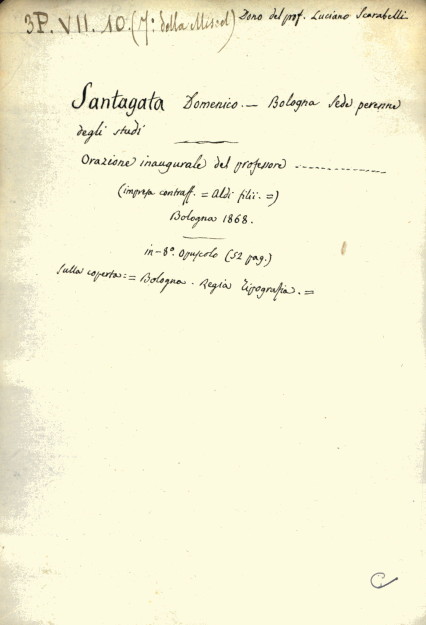 3P. VII. 10. (7º: della Miscel) Dono del prof. Luciano Scarabelli
Santagata Domenico. — Bologna Sede perenne
degli studi
Orazione inaugurale del professore --------------
(impresa contraff. = Aldi filii. =)
Bologna 1868.
in-8º. opuscolo (52 pag.)
Sulla coperta: = Bologna. Regia Tipografia. =
C